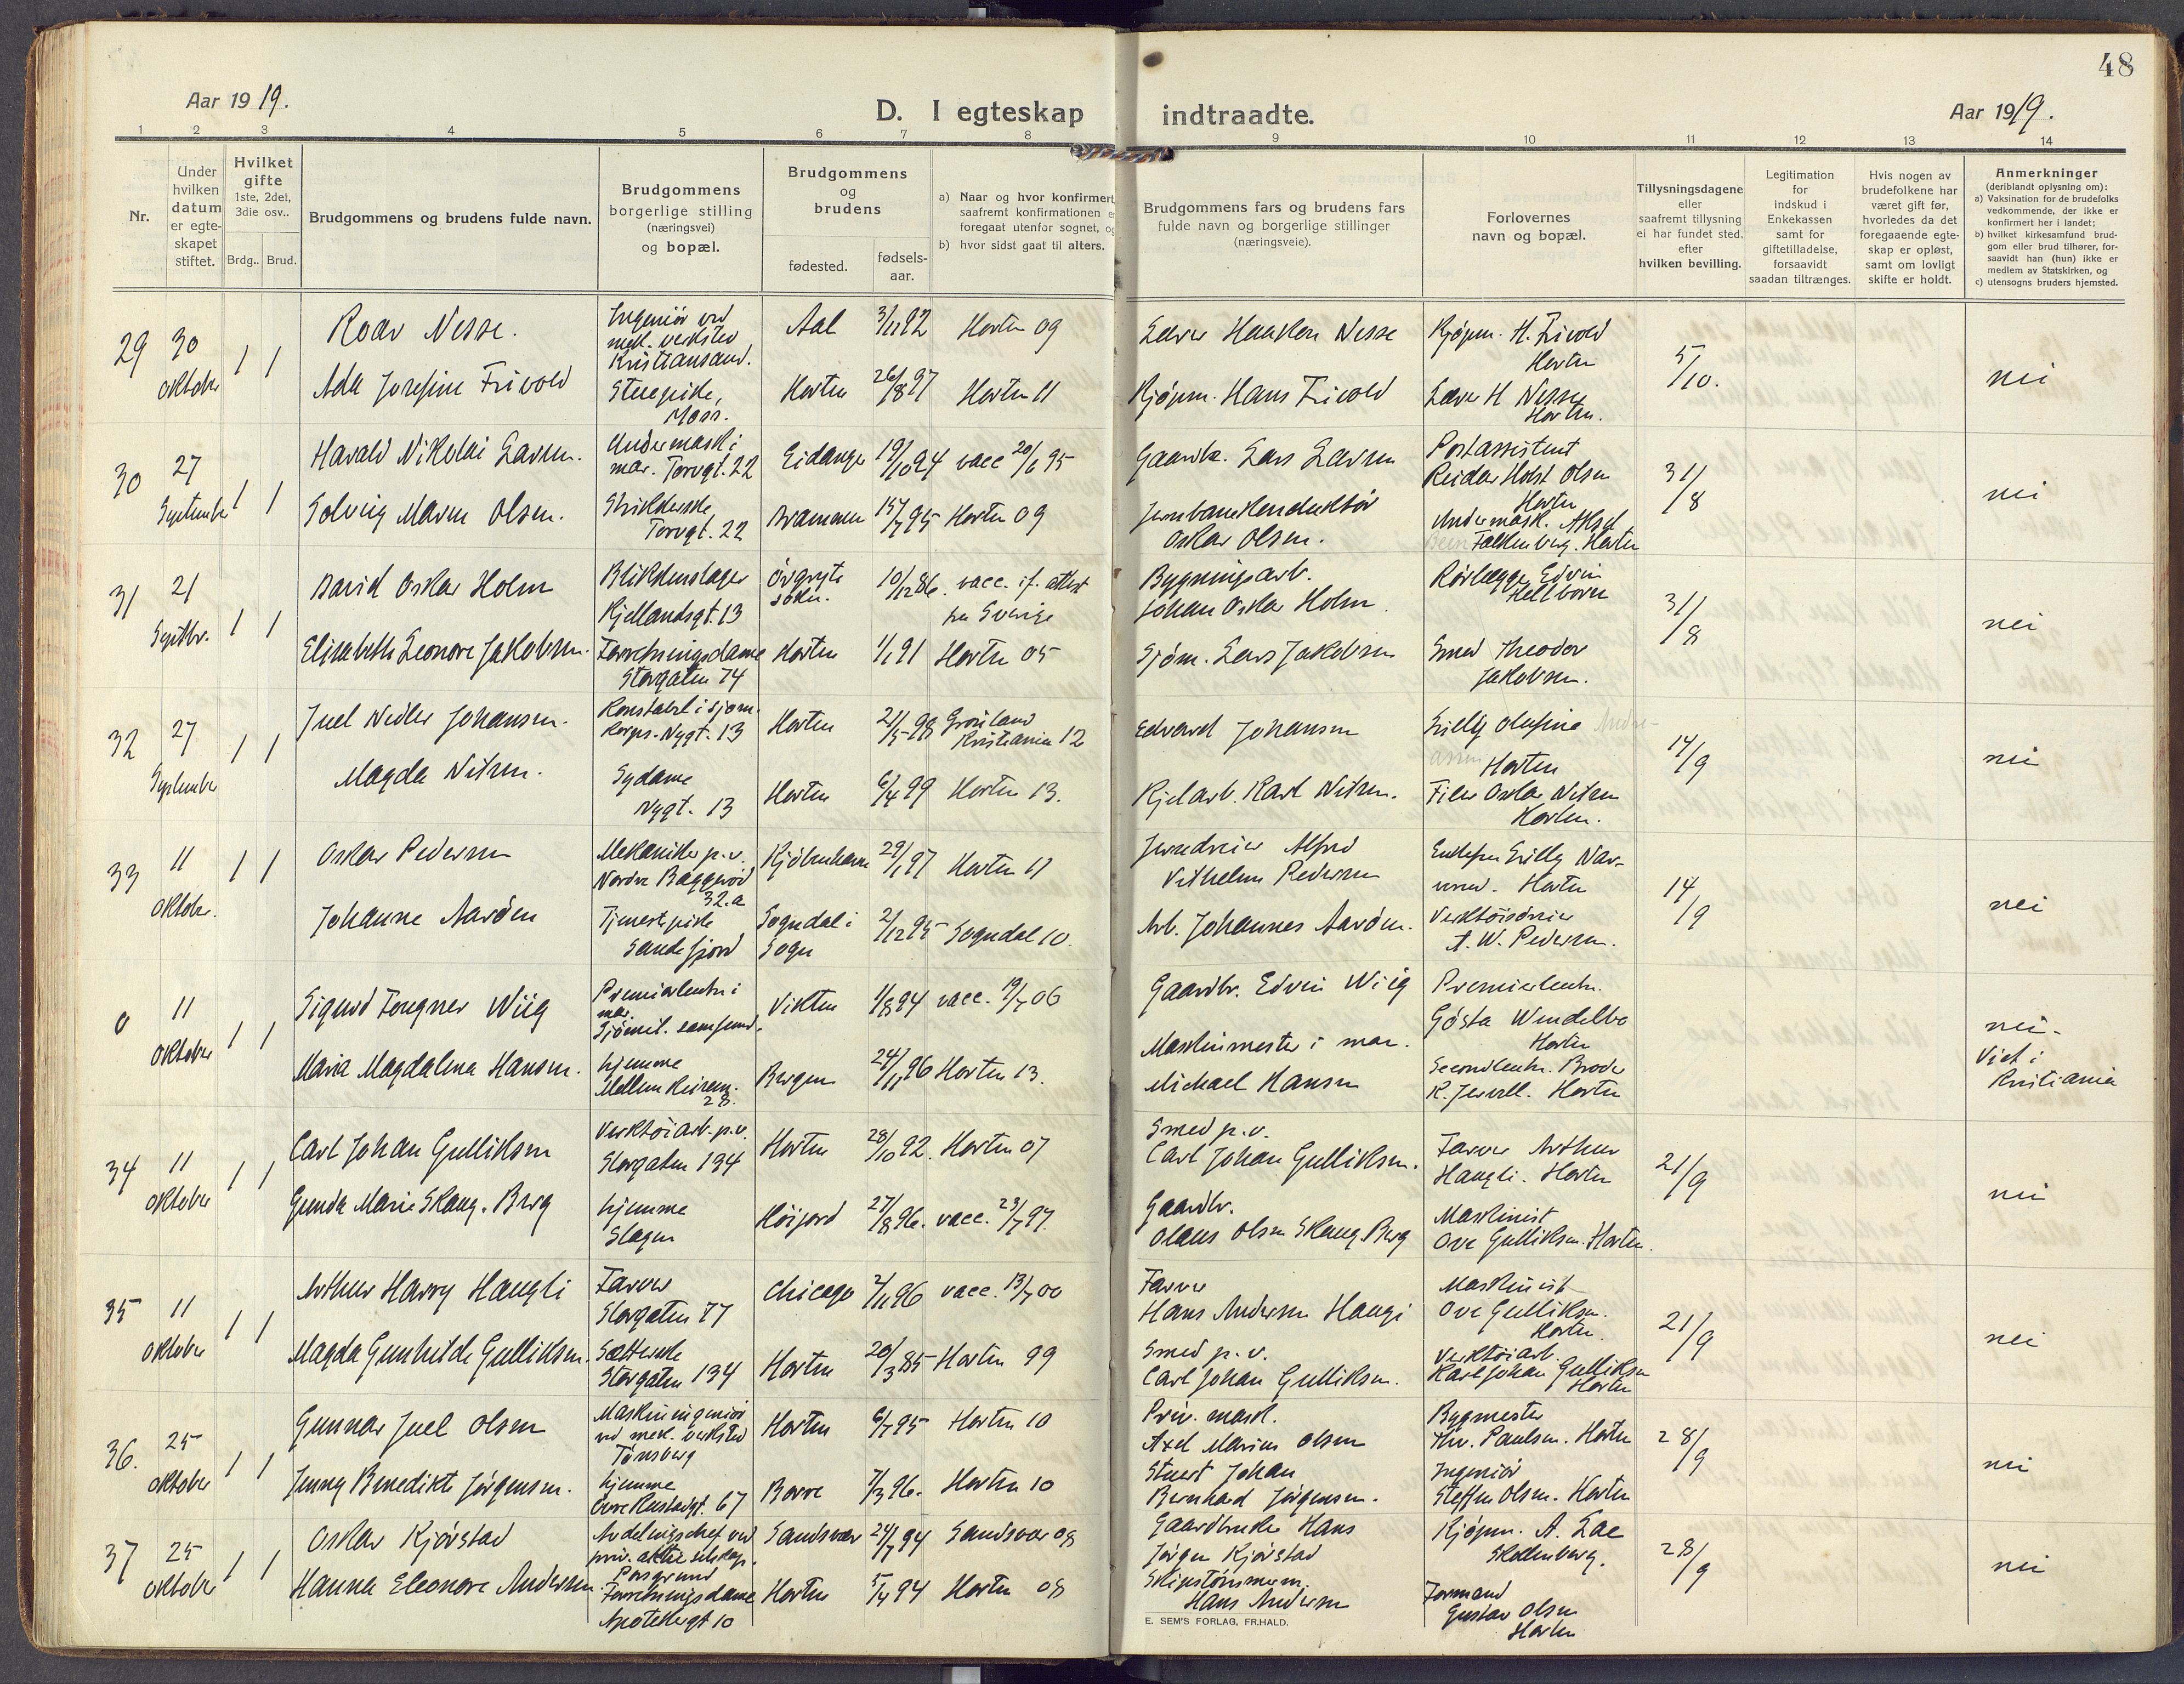 48
Aar 1919.
D. I egteskap indtraadte.
Aar 1919.
1 2 3 4 5 6 7 8 9 10 11 12 13 14
Nr.
Under hvilken datum er egte-skapet stiftet.
Hvilket gifte
1ste, 2det, 3die osv..
Brdg.. Brud.
Brudgommens og brudens fulde navn.
Brudgommens borgerlige stilling (næringsvei) og bopæl.
Brudgommens og brudens
fødested.
fødsels-aar.
a) Naar og hvor konfirmert
saafremt konfirmationen
foregaat utenfor sognet,
b) hvor sidst gaat til alters.
Brudgommens fars og brudens fars
fulde navn og borgerlige stillinger
(næringsveie).
Forlovernes
navn og bopæl.
Tillysningsdagene
eller
saafremt tillysning
ei har fundet sted.
efter
hvilken bevilling.
Legitimation
for
indskud i
Enkekassen
samt for
giftetilladelse,
forsaavidt
saadan tiltrænges.
Hvis nogen av
brudefolkene har
været gift før,
hvorledes da det
foregaaende egte-
skap er opløst,
samt om lovligt
skifte er holdt.
Anmerkninger
(deriblandt oplysning om):
a) Vaksination for de brudefolks
vedkommende, der ikke er
konfirmert her i landet;
b) hvilket kirkesamfund brud-
gom eller brud tilhører, for-
saavidt han (hun) ikke er
medlem av Statskirken, og
c) utensogns bruders hjemsted.
29 30 oktober 1 1
Roar Nesse.
Ingeniør ved mek. verksted Kristiansand.
Aal 3/11 92 Horten 09
Kjøpm. H. Trivold Horten
5/10.
nei
Ada Josefine Trivold
Stuepike, Moss.
Horten 26/8 97 Horten 11
Kjøpm. Hans Trivold
H Nesse Horten.
30 27 September 1 1
Harald Nikolai Larsen.
Undermask i mar. Torvgt. 22
Eidanger 19/10 94 vacc 20/6 95
Gaardbr. Lars Larsen
Postassistent Reidar Holst Olsen Horten
31/8
nei
Solveig Maren Olsen.
Torvgt. 22
Drammen 15/7 95 Horten 09
Jernbanekonduktør Oskar Olsen.
Undermask. Falkenberg. Horten
31 21 Septbr. 1 1
David Oskar Holm
Blikkenslager Kjellandsgt. 13
Örgryte Söken. 10/12 86. vacc. if. attest fra Sverige
Bygningsarb. Johan Oskar Holm.
Rørlægger Edvin Hellborn
31/8
nei
Elisabeth Leonore Jakobsen.
Forretningsdame Storgaten 74
Horten 1/1 91 Horten 05
Sjøm. Lars Jakobsen
Smed Theodor Jakobsen.
32 27 September 1 1
Juel Johansen.
Konstabel i sjøm. korps. Nygt. 13
Horten 21/5 98 Grønland Kristiania 12
Edvard Johansen
Olufine Horten
14/9
nei
Magda Nilsen.
Sydame Nygt. 13
Horten 6/4 99 Horten 13.
Kjelarb. Karl Nilsen.
Filer Oskar Nilsen Horten.
33 11 Oktober. 1 1
Oskar Pedersen
Mekaniker p.v. Nordre Baggerød 32.a
Kjøbenhavn 29/1 97 Horten 11
Jerndreier Alfred Vilhelm Pedersen
Horten
14/9
nei
Johanne Aarøen
Tjenestepike Sandefjord
Sogndal i Sogn 2/12 95 Sogndal 10.
Arb. Johannes Aarøen.
Verktøisdreier A. W. Pedersen.
0 11 Oktober 1 1
Sigurd Fougner Wiig
Premierleutn i mar. Sjømil. samfund.
Vikten 1/8 94 vacc. 19/7 06
Gaardbr. Edvin Wiig
Premierleutn. Gösta Wendelbo Horten
nei.
Viet i Kristiania
Maria Magdalena Hansen.
hjemme Mellem 28.
Bergen 24/11 96 Horten 13.
Maskinmester i mar. Michael Hansen
Secondleutn. Horten
34 11 Oktober 1 1
Carl Johan Gulliksen
Verktøiarb. p.v. Storgaten 134
Horten 28/10 92. Horten 07
Smed p.v. Carl Johan Gulliksen.
Farver Arthur Haugli. Horten
21/9
nei
Gunda Marie Skaug. Berg
hjemme Slagen
Høijord 27/8 96. vacc. 23/7 97.
Gaardbr. Olaus Olsen Skaug. Berg
Maskinist Ove Gulliksen. Horten.
35 11 Oktober 1 1
Arthur Harry Haugli
Farver Storgaten 77
Chicago 2/11 96 vacc. 13/7 00
Farver Hans Andersen Haugi
Maskinist Ove Gulliksen. Horten.
21/9
nei
Magda Gunhilde Gulliksen.
Sætterske Storgaten 134
Horten 20/3 85 Horten 99
Smed p.v. Carl Johan Gulliksen.
Verktøiarb. Karl Johan Gulliksen Horten
36. 25 Oktober 1 1
Gunnar Juel Olsen
Maskiningeniør ved mek. verksted Tønsberg
Horten 6/7 95 Horten 10
Priv. mask. Axel Marius Olsen
Bygmester Thv. Paulsen. Horten
28/9
nei
Jenny Benedikte Jørgensen.
hjemme 67
Borre 7/3 96. Horten 10
Stuert Johan Bernhard Jørgensen.
Ingeniør Steffen Olsen. Horten
37 25 Oktober 1 1
Oskar Kjørstad
Avdelingschef ved priv. aktieselskap. Porsgrund
Sandsvær 24/7 94 Sandsvær 08
Gaardbruker Hans Jørgen Kjørstad
Kjøpm. A. Lae Skollenberg.
28/9
nei
Hanna Eleonore Andersen.
Forretningsdame Apotekergt 10
Horten 5/4 94 Horten 08
Skipstømmerm. Hans Andersen
Formand Gustav Olsen Horten
E. SEM'S FORLAG, FR.HALD.